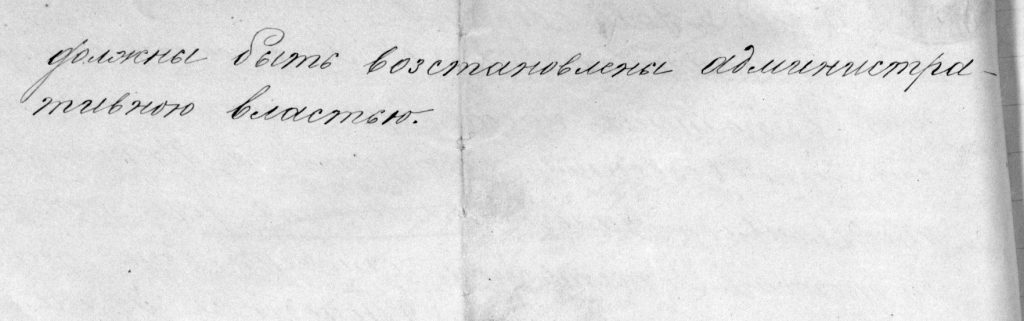 должны быть возстановлены администра-
тивною властью.